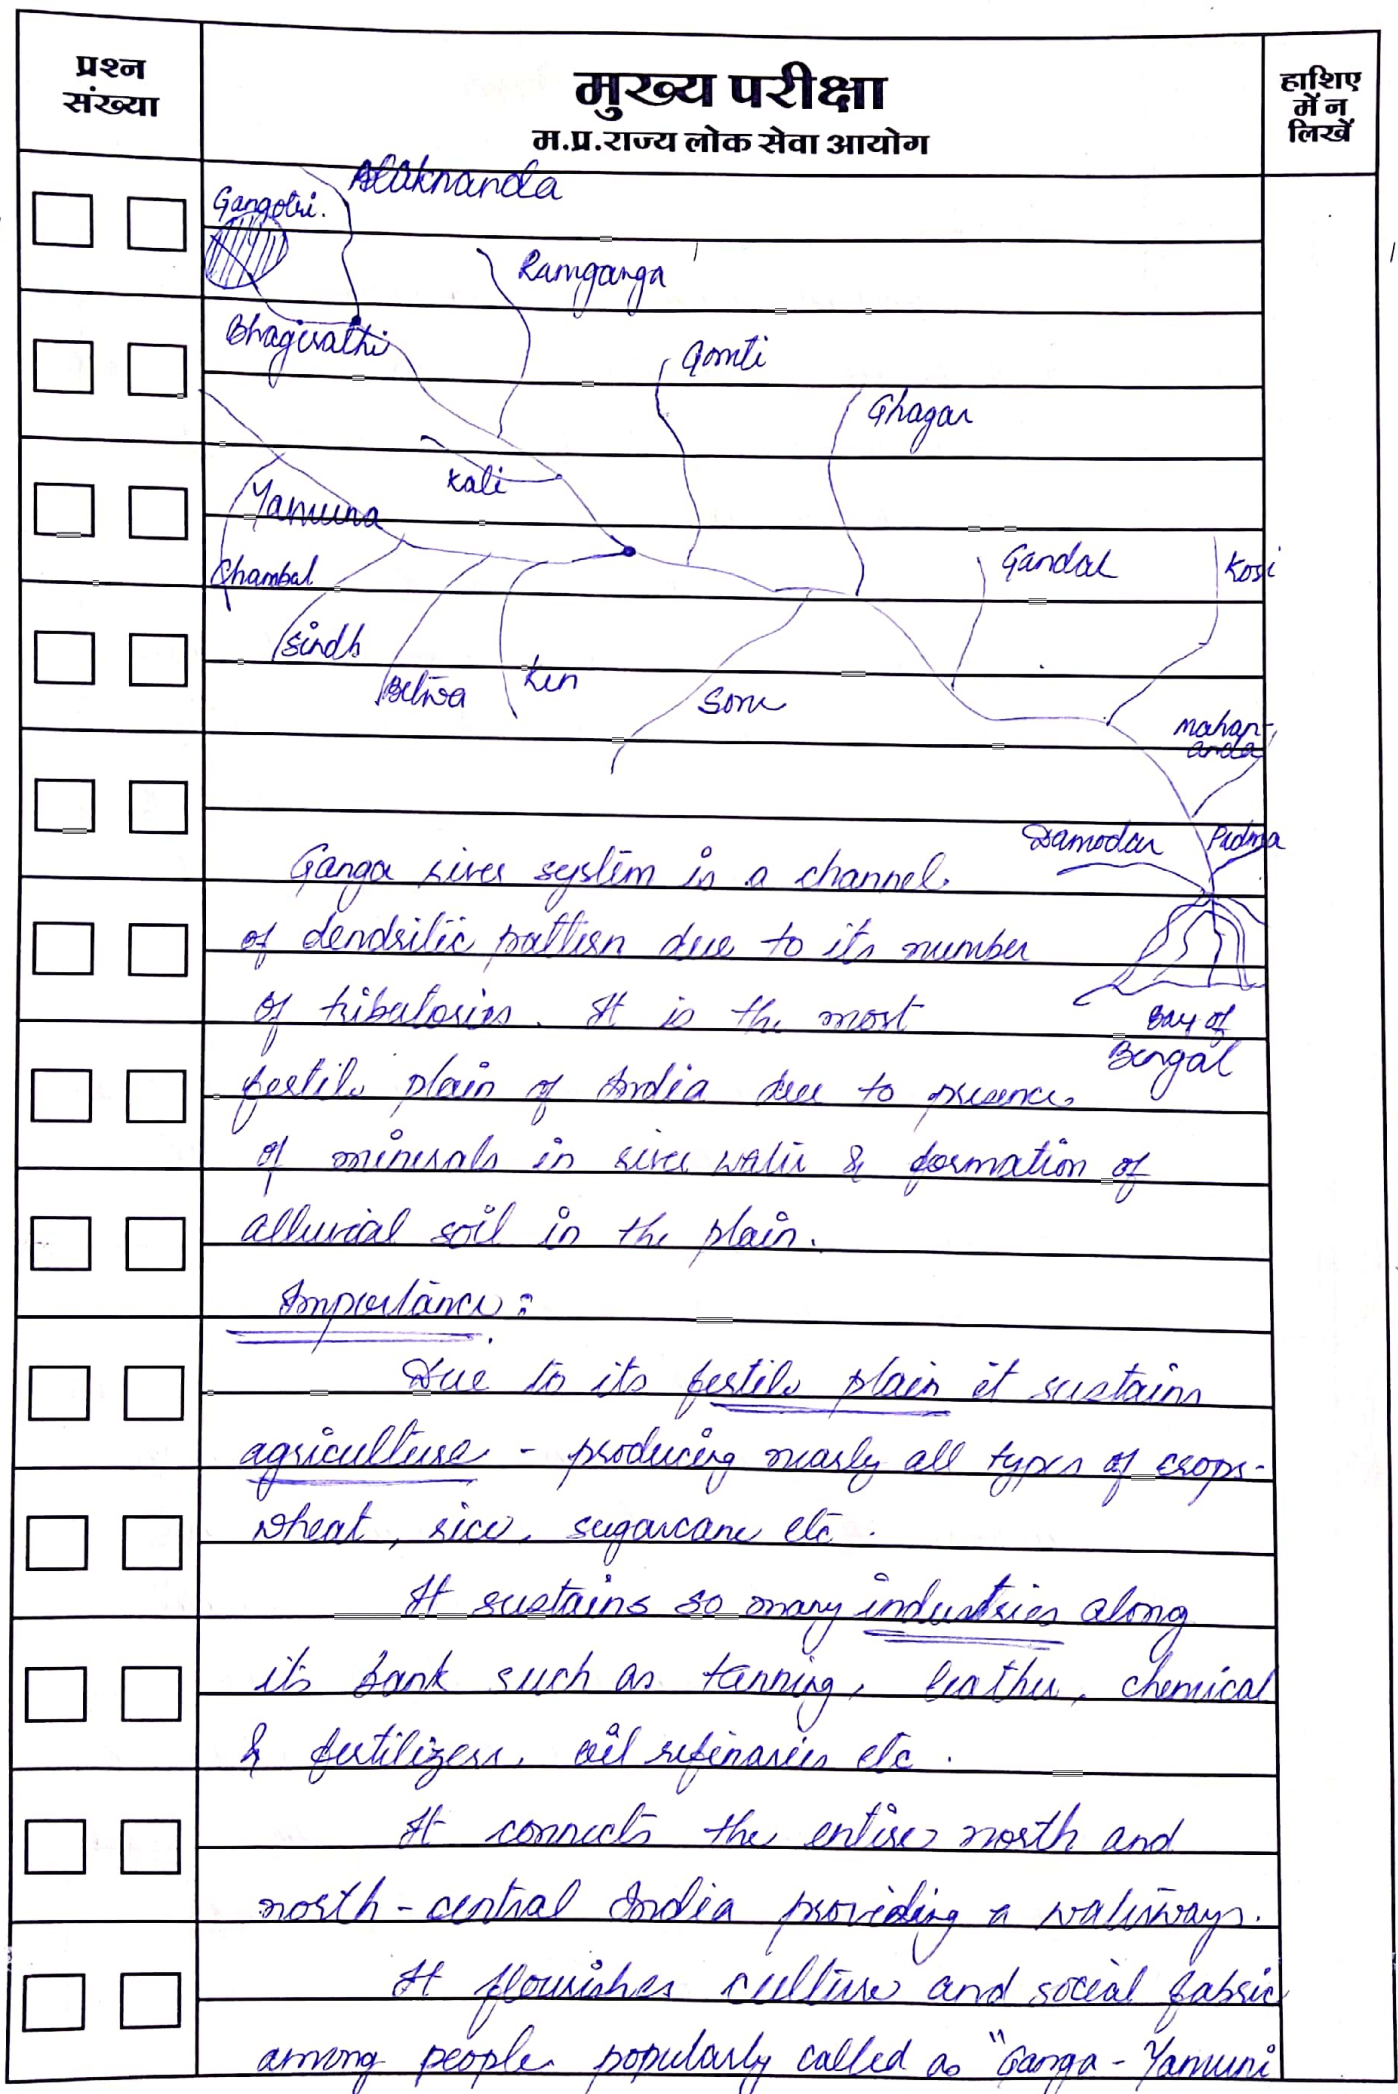 प्रश्न
संख्या
मुख्य परीक्षा
म.प्र.राज्य लोक सेवा आयोग
हाशिए
में न
लिखें
Alaknanda
Gangotri.
Ramganga
Bhagirathi
Gomti
Ghagar
Kali
Yamuna
Chambal
Gandak
Kosi
Sindh
Betwa
Ken
Sone
Mahan-
anda
Damodar
Padma
Ganga river system is a channel
of dendritic pattern due to its number
of tributories. It is the most
Bay of
Bengal
fertile plain of India due to presence
of minerals in river water & formation of
alluvial soil in the plain.
Importance:
Due to its fertile plain it sustains
agriculture - producing nearly all types of crops-
wheat, rice, sugarcane etc.
It sustains so many industries along
its bank such as tanning, leather, chemical
& fertilizers, oil refinaries etc.
It connects the entire north and
north-central India providing a waterways.
It flourishes culture and social fabric
among people popularly called as "Ganga-Yamuni